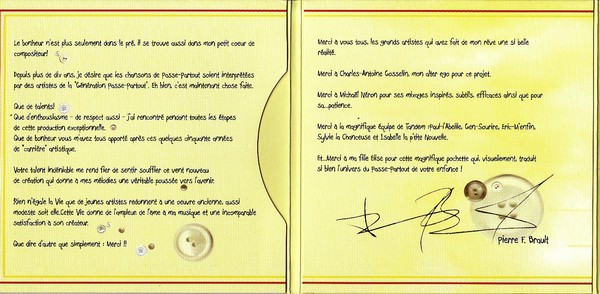 Le bonheur n'est plus seulement dans le pré, il se trouve aussi dans mon petit coeur de
compositeur!
Depuis plus de dix ans, je désire que les chansons de Passe-Partout soient interprétées
par des artistes de la "Génération Passe-Partout". Eh bien, c'est maintenant chose faite.
Que de talents!
Que d'enthousiasme - de respect aussi - j'ai rencontré pendant toutes les étapes
de cette production exceptionnelle.
Que de bonheur vous m'avez tous apporté après ces quelques cinquante années
de "carrière" artistique.
Votre talent indéniable me rend fier de sentir souffler ce vent nouveau
de création qui donne à mes mélodies une véritable poussée vers l'avenir.
Rien n'égale la Vie que de jeunes artistes redonnent à une oeuvre ancienne, aussi
modeste soit elle.Cette Vie donne de l'ampleur de l'âme à ma musique et une incomparable
satisfaction à son créateur.
Que dire d'autre que simplement : Merci !!
Merci à vous tous, les grands artistes qui avez fait de mon rêve une si belle
réalité.
Merci à Charles-Antoine Gosselin, mon alter ego pour ce projet.
Merci à Michaël Néron pour ses mixages inspirés, subtils, efficaces ainsi que pour
sa...patience.
Merci à la magnifique équipe de Tandem :Paul-l'Abeille, Gen-Sourire, Eric-M'enfin,
Sylvie la Chanceuse et Isabelle la p'tite Nouvelle.
Et...Merci à ma fille Elise pour cette magnifique pochette qui, visuellement, traduit
si bien l'univers du Passe-Partout de votre enfance !
Pierre F. Brault